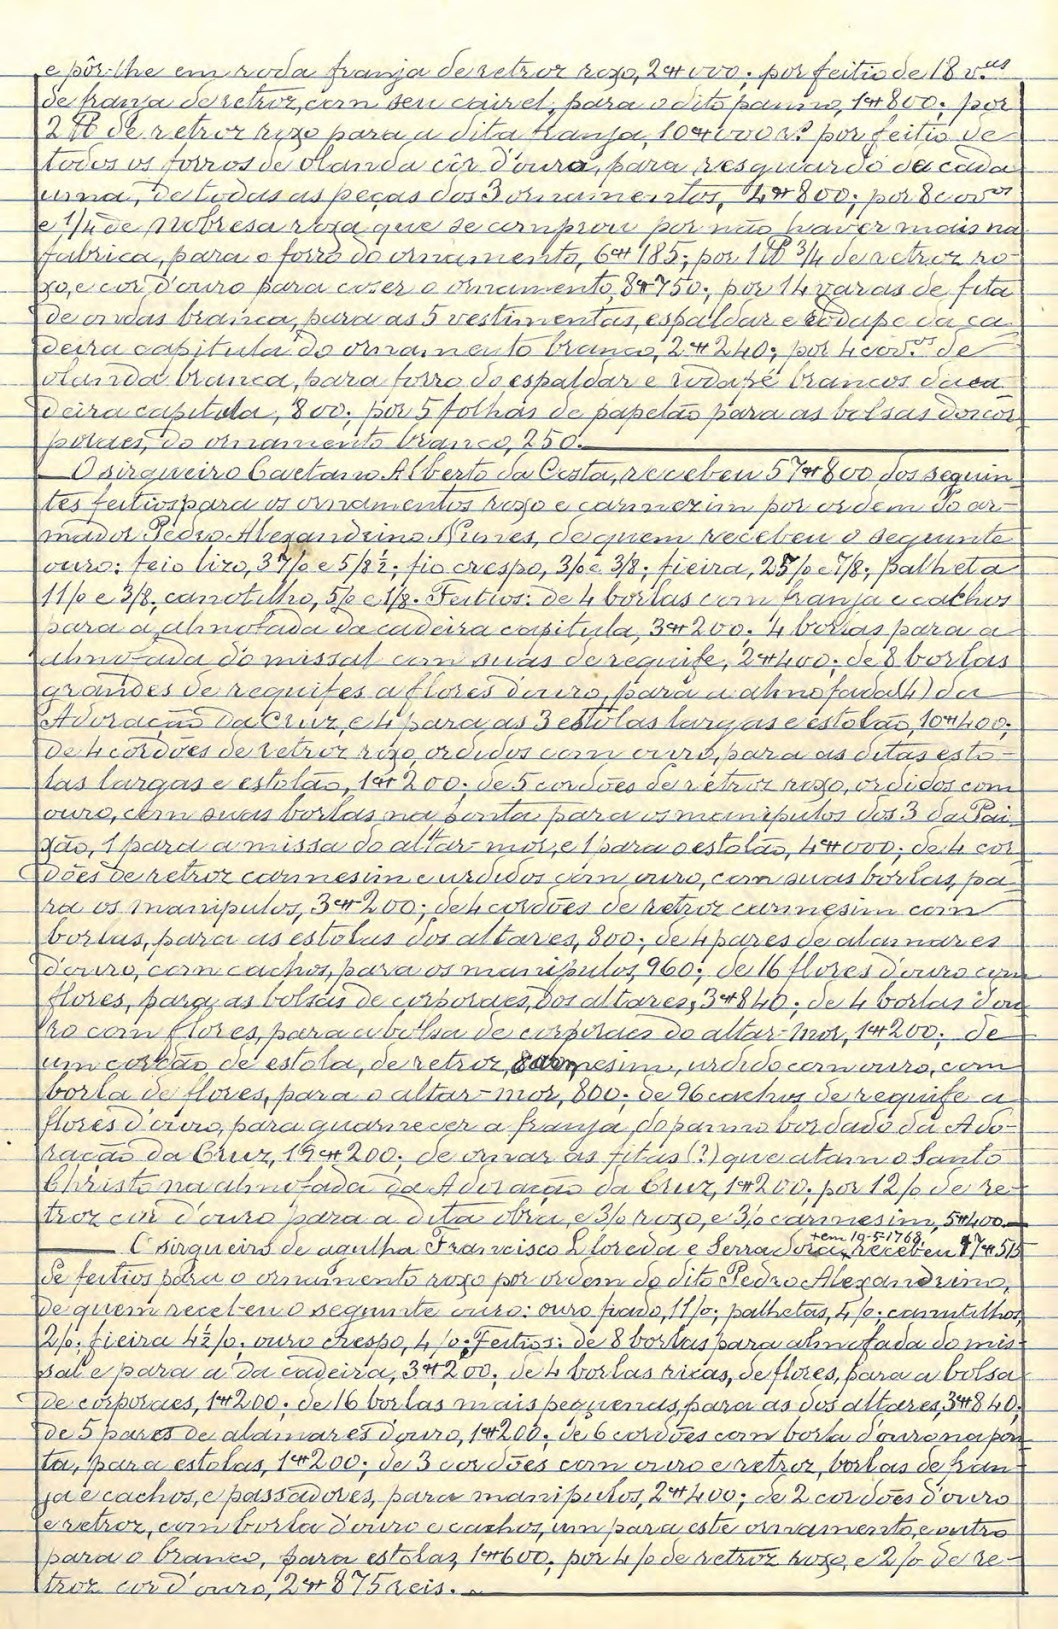 e pôr-lhe em roda franja de retroz roxo, 2$000; por feitio de 18 v.as
de franja de retroz, com seu cairel, para o dito panno, 1$800; por
2 de retroz roxo para a dita franja, 10$000 rs. por feitio de
todos os forros de olanda côr d'ouro, para resguardo da cada
uma, de todas as peças dos 3 ornamentos, 4$800; por 8 cov.os
e 1/4 de nobresa roxa que se comprou por não haver mais na
fabrica, para o forro do ornamento, 6$185; por 1 3/4 de retroz ro-
xo, e cor d'ouro para coser o ornamento, 8$750; por 14 varas de fita
de ondas branca, para as 5 vestimentas, espaldar e rodapé da ca-
deira capitula do ornamento branco, 2$240; por 4 cov.os de
olanda branca, para forro do espaldar e rodapé brancos da ca-
deira capitula, 800; por 5 folhas de papelão para as bolsas dos cor-
poraes, do ornamento branco, 250.
O sirgueiro Caetano Alberto da Costa, recebeu 57$800 dos seguin-
tes feitios para os ornamentos roxo e carmezim por ordem do ar-
mador Pedro Alexandrino Nunes, de quem recebeu o seguinte
ouro: feio lizo, 37/o e 5/8 ½; fio crespo, 3/o e 3/8; fieira, 25/o e 7/8; palheta
11/o e 3/8, canotilho, 5/o e 1/8. Feitios: de 4 borlas com franja e cachos
para a almofada da cadeira capitula, 3$200; 4 borlas para a
almofada do missal com suas de requife, 2$400; de 8 borlas
grandes de requifes a flores d'ouro, para a almofada (4) da
Adoração da Cruz, e 4 para as 3 estolas largas e estolão, 10$400;
de 4 cordões de retroz roxo, ordidos com ouro, para as ditas esto-
las largas e estolão, 1$200; de 5 cordões de retroz roxo, ordidos com
ouro, com suas borlas na ponta para os manipulos dos 3 da Pai-
xão, 1 para a missa do altar-mor, e 1 para o estolão, 4$000; de 4 cor-
dões de retroz carmesim e urdidos com ouro, com suas borlas, pa-
ra os manipulos, 3$200; de 4 cordões de retroz carmesim com
borlas, para as estolas dos altares, 800; de 4 pares de alamares
d'ouro, com cachos, para os manipulos, 960; de 16 flores d'ouro com
flores, para as bolsas de corporaes, dos altares, 3$840; de 4 borlas d'ou-
ro com flores, para a bolsa de corporaes do altar-mor, 1$200; de
um cordão de estola, de retroz, carmesim, urdido com ouro, com
borla de flores, para o altar-mor, 800; de 96 cachos de requife a
flores d'ouro, para guarnecer a franja do panno bordado da Ado-
ração da Cruz, 19$200; de ornar as fitas (?) que atam o Santo
Christo na almofada da Adoração da Cruz, 1$200; por 12/o de re-
troz cor d'ouro para a dita obra, e 3/o roxo, e 3/o carmesim, 5$400.
O sirgueiro de agulha Francisco Lloreda e Serra
+ em 19-5-1768,
recebeu 17$515
de feitios para o ornamento roxo por ordem do dito Pedro Alexandrino,
de quem recebeu o seguinte ouro: ouro fiado, 11/o; palhetas, 4/o; canutilhos,
2/o; fieira 4½/o; ouro crespo, 4/o; Feitios: de 8 borlas para almofada do mis-
sal e para a da cadeira, 3$200; de 4 borlas ricas, de flores, para a bolsa
de corporaes, 1$200; de 16 borlas mais pequenas, para as dos altares, 3$840;
de 5 pares de alamares d'ouro, 1$200; de 6 cordões com borla d'ouro na pon-
ta, para estolas, 1$200; de 3 cordões com ouro e retroz, borlas de fran-
ja e cachos, e passadores, para manipulos, 2$400; de 2 cordões d'ouro
e retroz, com borla d'ouro e cachos, um para este ornamento, e outro
para o branco, para estolas, 1$600; por 4/o de retroz roxo, e 2/o de re-
troz cor d'ouro, 2$875 reis.